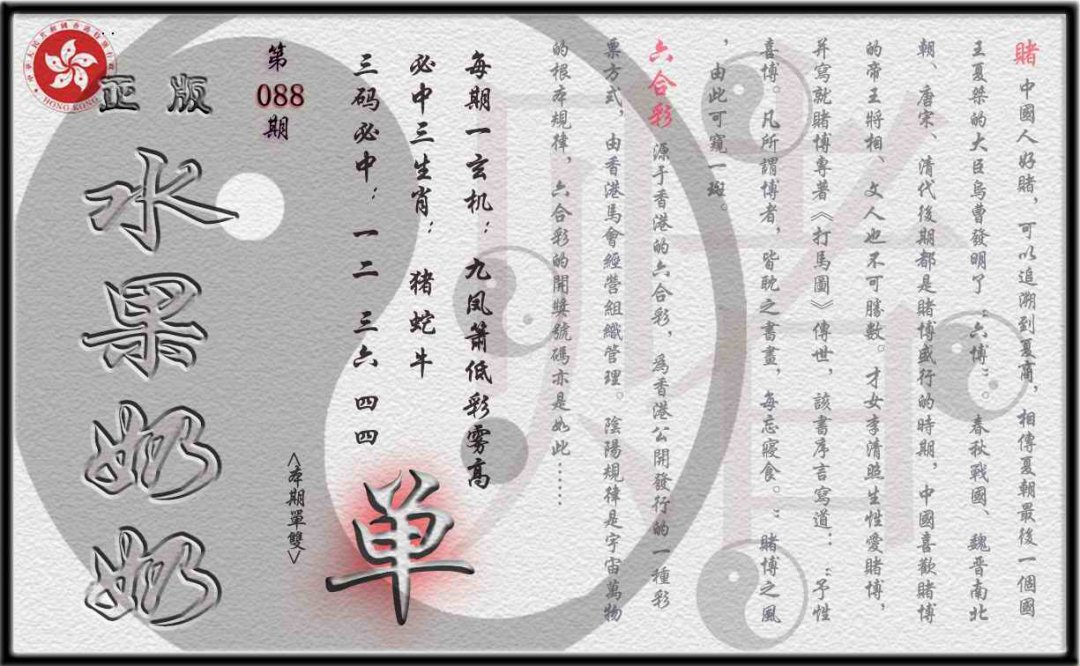 賭 中國人好賭，可以追溯到夏商，相傳夏朝最後一個國
王夏桀的大臣烏曹發明了“六博”。春秋戰國、魏晉南北
朝、唐宋、清代後期都是賭博盛行的時期，中國喜歡賭博
的帝王將相、文人也不可勝數。才女李清照生性愛賭博，
并寫就賭博專著《打馬圖》傳世，該書序言寫道：“予性
喜博。凡所謂博者，皆耽之書畫，每忘寢食。”賭博之風
，由此可窺一斑。
六合彩 源于香港的六合彩，爲香港公開發行的一種彩
票方式，由香港馬會經營組織管理。陰陽規律是宇宙萬物
的根本規律，六合彩的開獎號碼亦是如此……
每期一玄机：九凤箫低彩雾高
必中三生肖：猪蛇牛
三码必中：一二 三六 四四
单
<本期單雙>
第088期
正版
水果奶奶
HONG KONG